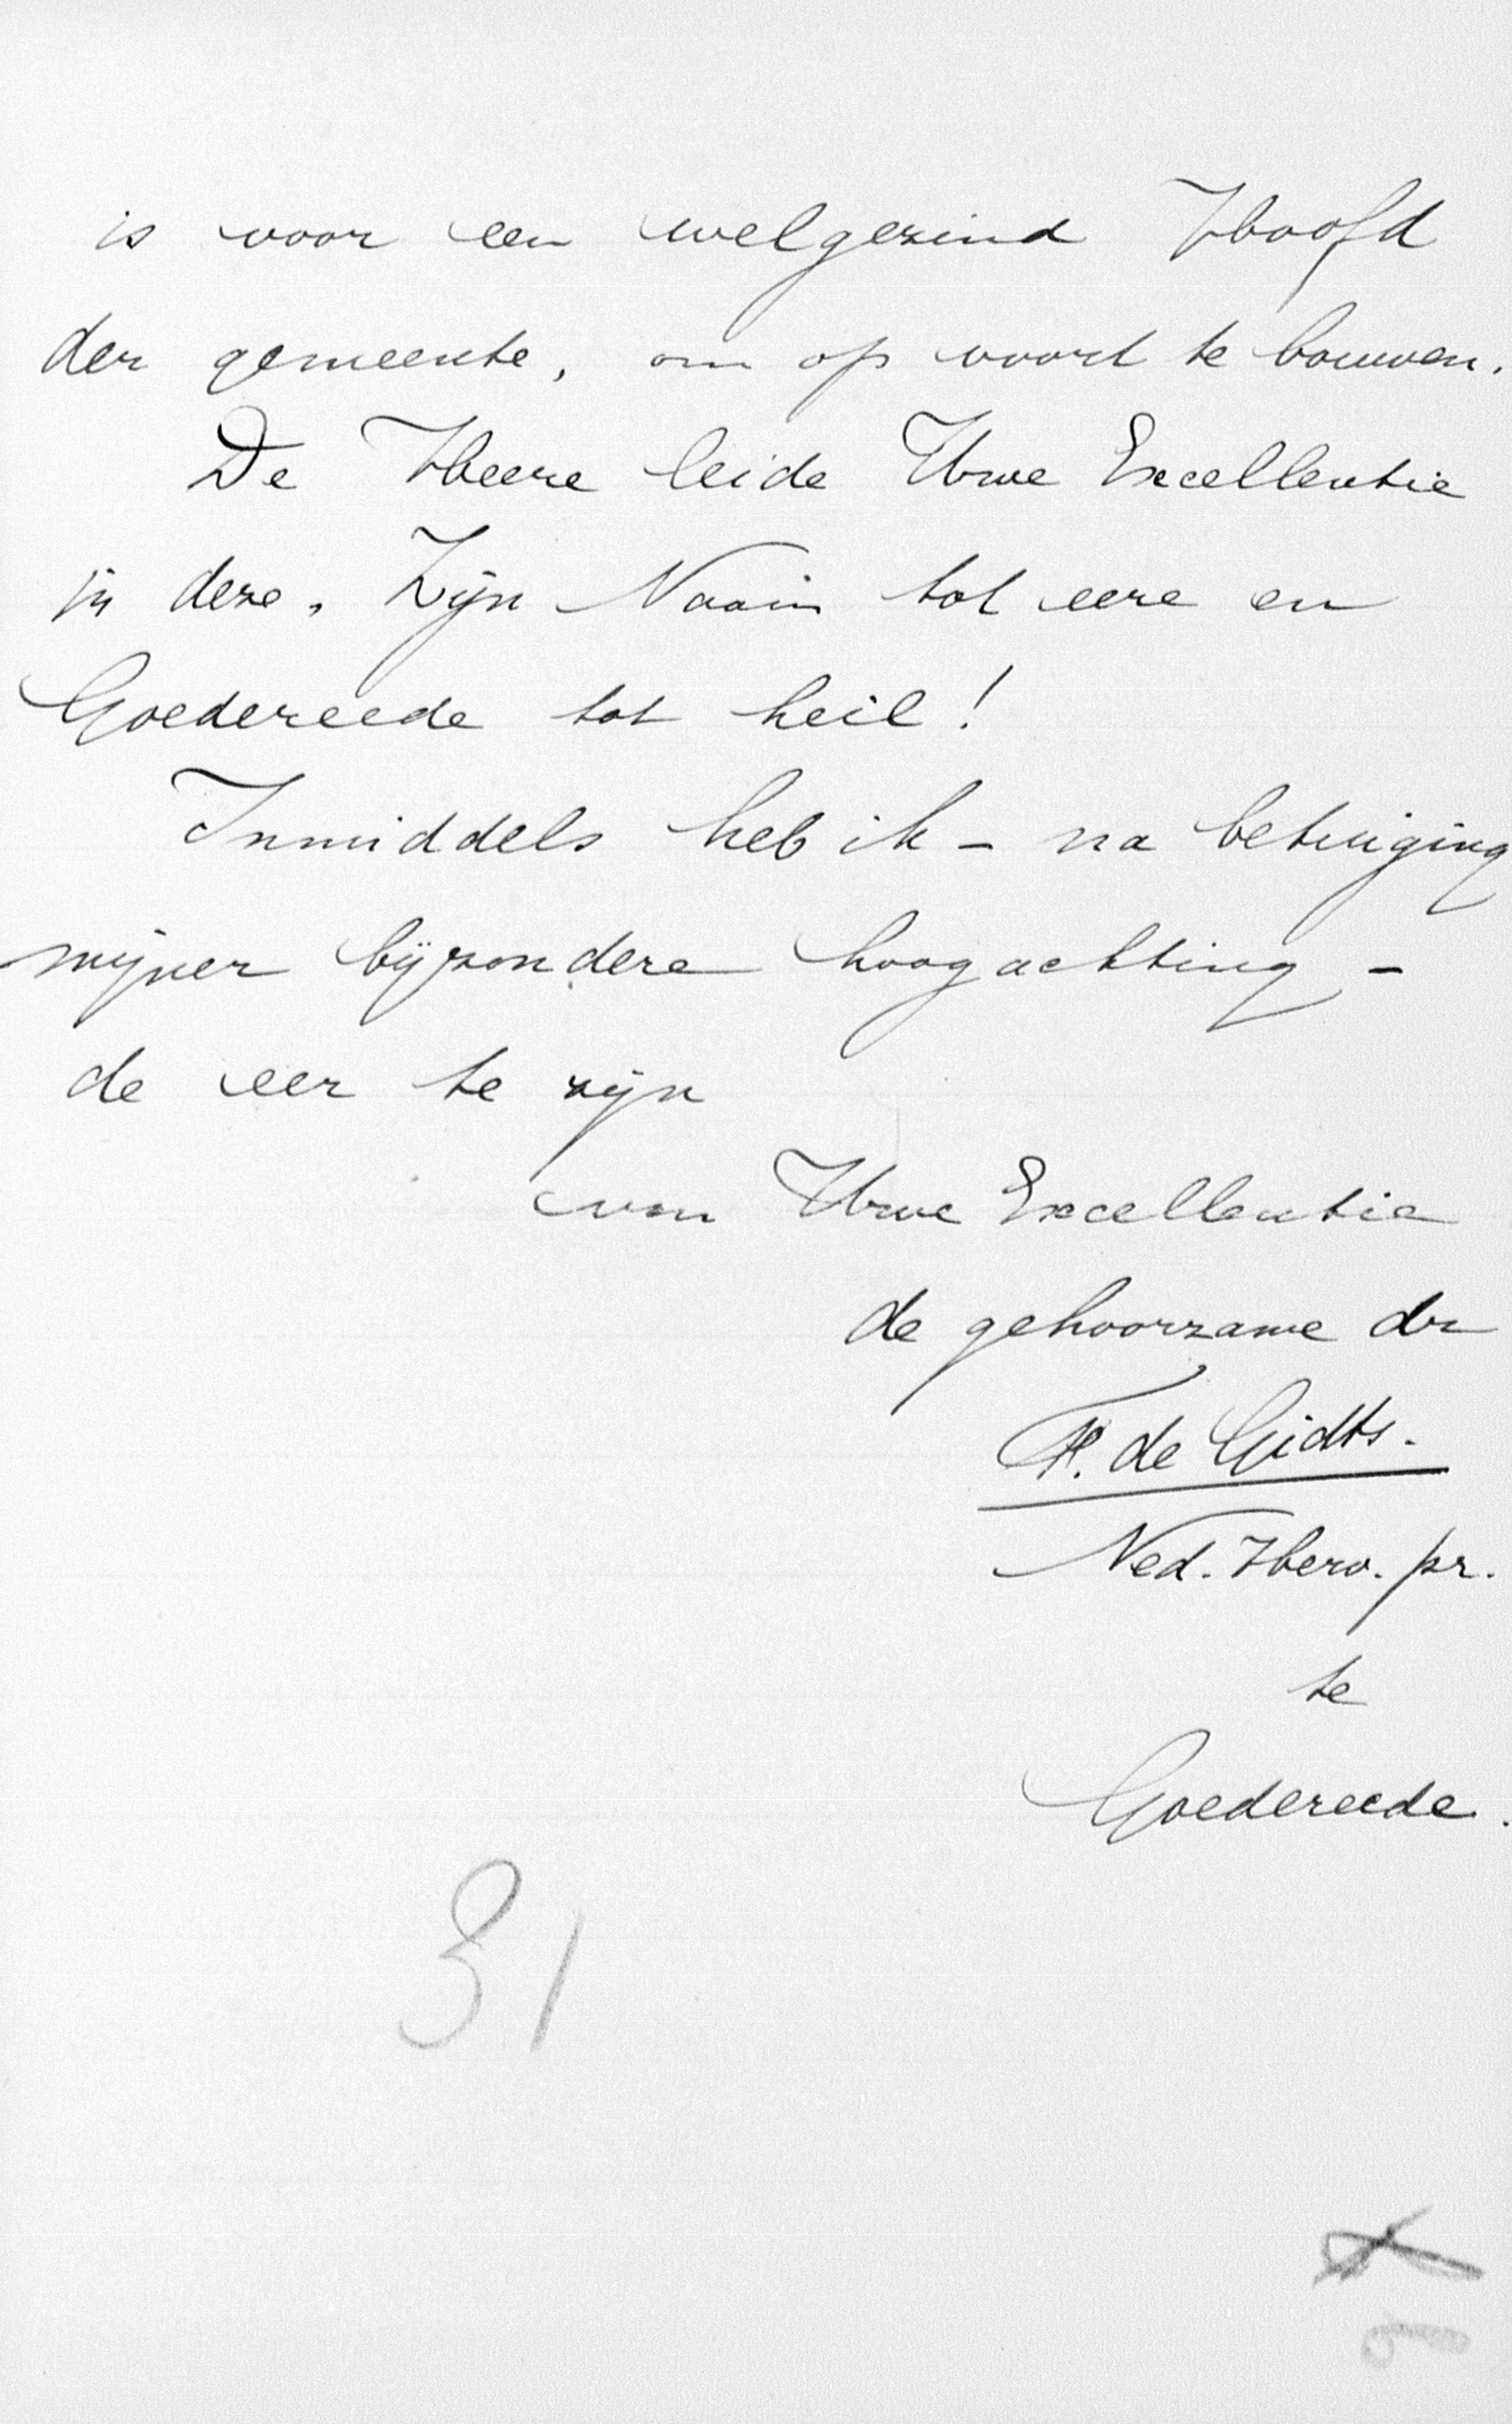 is voor een welgezind Hoofd
der gemeente, om op voort te bouwen.
De Heere leide Uwe Excellentie
in deze, Zijn Naam tot eere en
Goedereede tot heil!
Inmiddels heb ik - na betuiging
mijner bijzondere hoogachting -
de eer te zijn
van Uwe Excellentie
de gehoorzame dr
de Gidts.
Ned. Herv. pr.
te
Goedereede.
31